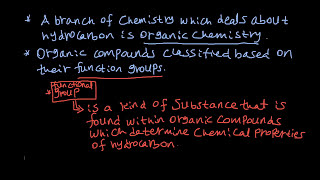 * A branch of Chemistry which deals about
hydrocarbon is Organic Chemistry.
* Organic compounds classified based on
their function groups.
functional
group
is a kind of Substance that is
found within organic compounds
which determine Chemical Properties
of hydrocarbon.